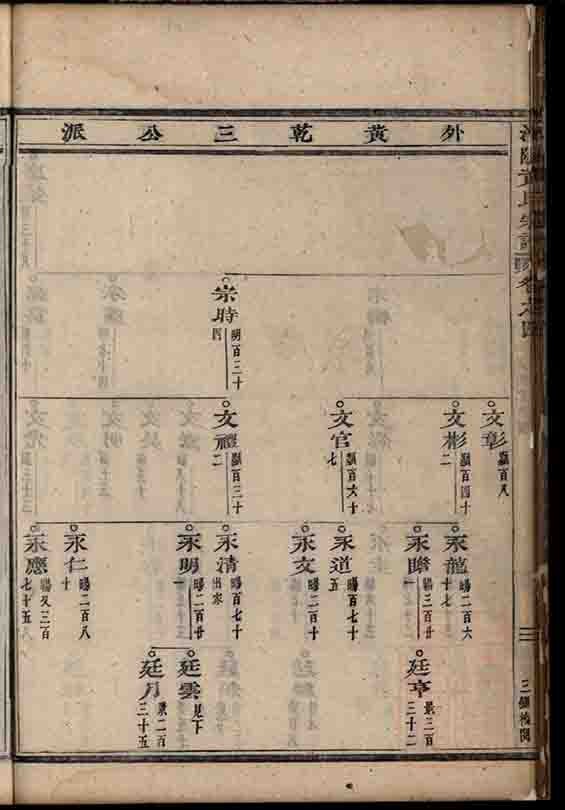 外黃乾三公派
宗時
明百三十四
文彰
顯百八
文彬
顯百四十二
文官
顯百六十七
文禮
顯百三十二
永龍
暘二百六十七
永瞻
暘三百廿一
永道
暘百七十五
永文
暘二百十
永清
暘百七十
出家
永明
暘二百廿一
永仁
暘二百八十
永應
廷亨
景三百三十二
廷雲
見下
廷月
景二百三十五